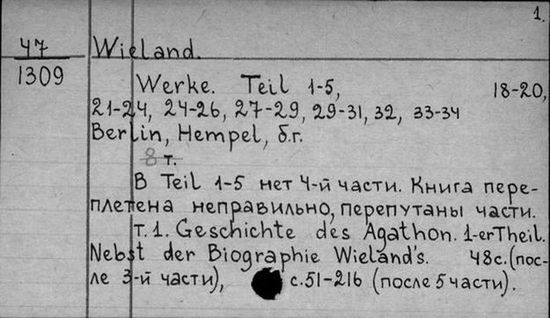 1.
47 Wieland.
1309
Werke. Teil 1-5, 18-20,
21-24, 24-26, 27-29, 29-31, 32, 33-34
Berlin, Hempel, б.г.
8 т.
В Teil 1-5 нет 4-й части. Книга пере-
плетена неправильно, перепутаны части.
т. 1. Geschichte des Agathon. 1-er Theil.
Nebst der Biographie Wieland's. 48 с. (пос-
ле 3-й части), с. 51-216 (после 5 части).